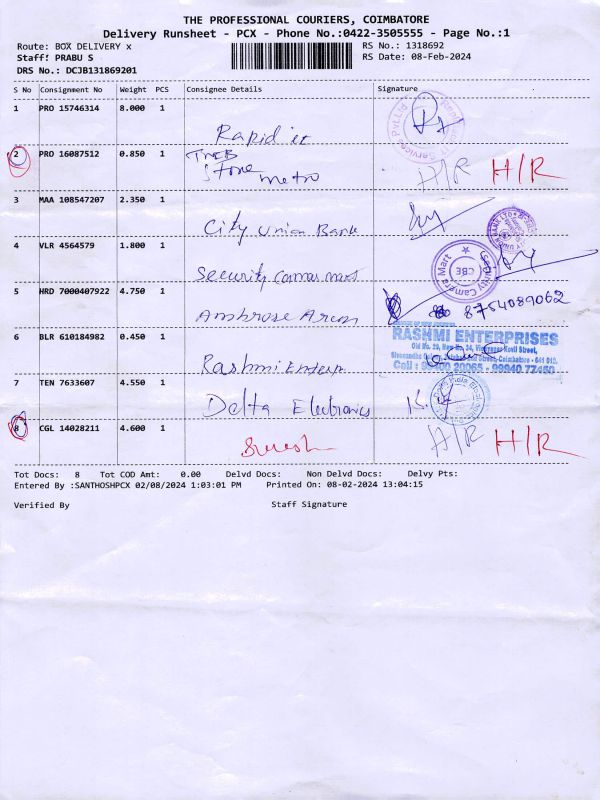 THE PROFESSIONAL COURIERS, COIMBATORE
Delivery Runsheet - PCX - Phone No.:0422-3505555 - Page No.:1
Route: BOX DELIVERY x
RS No.: 1318692
Staff: PRABU S
RS Date: 08-Feb-2024
DRS No.: DCJB131869201
S No Consignment No Weight PCS Consignee Details Signature
1 PRO 15746314 8.000 1
Rapid
2 PRO 16087512 0.850 1
TNEB
Store metro H/R H/R
3 MAA 108547207 2.350 1
City Union Bank
4 VLR 4564579 1.800 1
Security Camera Mart
CBE
5 HRD 7000407922 4.750 1
Ambrose Arun 8754089062
6 BLR 610184982 0.450 1
RASHMI ENTERPRISES
Old No. 29, New No. 34, Kovil Street,
Coimbatore - 641 012.
Rashmi Enterp
7 TEN 7633607 4.550 1
Delta Electronics
8 CGL 14028211 4.600 1
Suresh H/R H/R
Tot Docs: 8 Tot COD Amt: 0.00 Delvd Docs: Non Delvd Docs: Delvy Pts:
Entered By :SANTHOSHPCX 02/08/2024 1:03:01 PM Printed On: 08-02-2024 13:04:15
Verified By Staff Signature